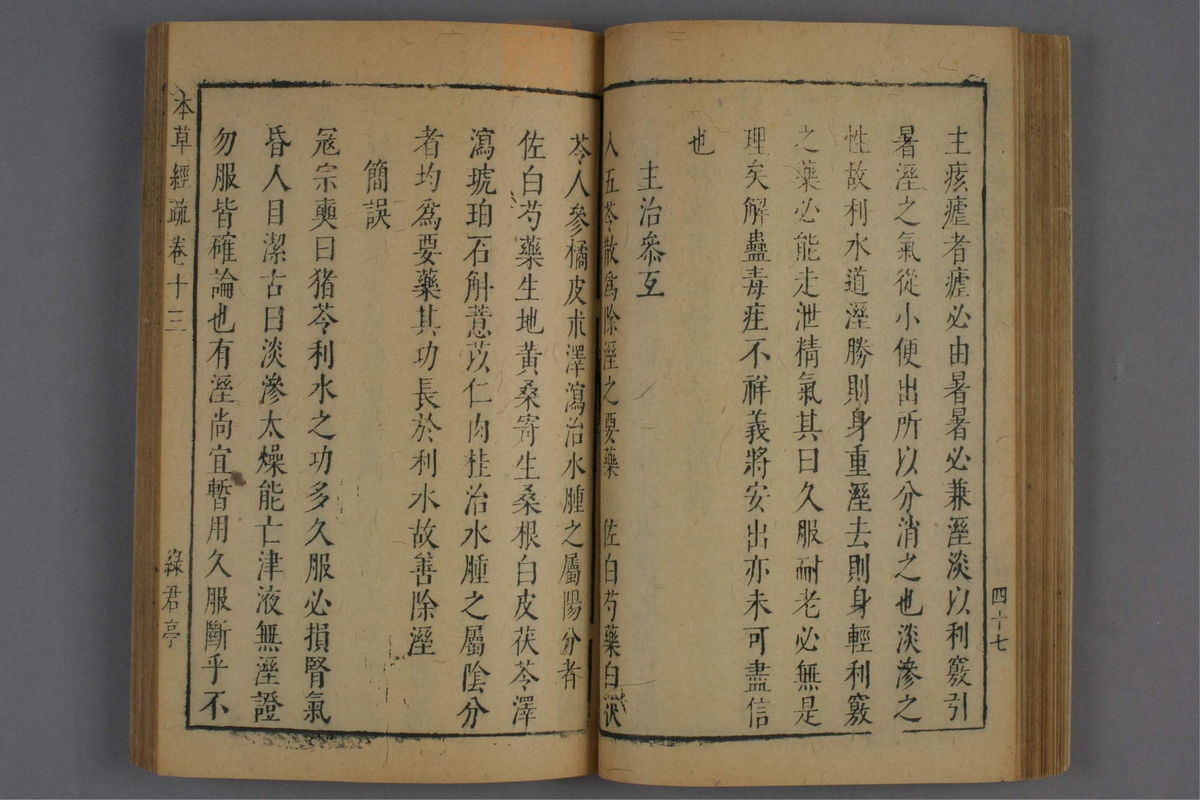 主痎瘧者瘧必由暑暑必兼溼淡以利竅引
暑溼之氣從小便出所以分消之也淡滲之
性故利水道溼勝則身重溼去則身輕利竅
之藥必能走泄精氣其曰久服耐老必無是
理矣解蠱毒疰不祥義將安出亦未可盡信
也
主治參互
入五苓散爲除溼之要藥 佐白芍藥白茯
苓人參橘皮朮澤瀉治水腫之屬陽分者
佐白芍藥生地黃桑寄生桑根白皮茯苓澤
瀉琥珀石斛薏苡仁肉桂治水腫之屬陰分
者均爲要藥其功長於利水故善除溼
簡誤
宼宗奭曰猪苓利水之功多久服必損腎氣
昏人目潔古曰淡滲太燥能亡津液無溼證
勿服皆確論也有溼尚宜暫用久服斷乎不
四十七
本草經疏卷十三
綠君亭